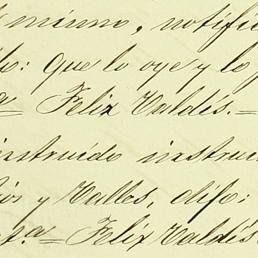 mismo, notific
: que lo oye y lo
Felix Valdés.=
instruido instruc
y Valles, dijo:
Felix Valdés.